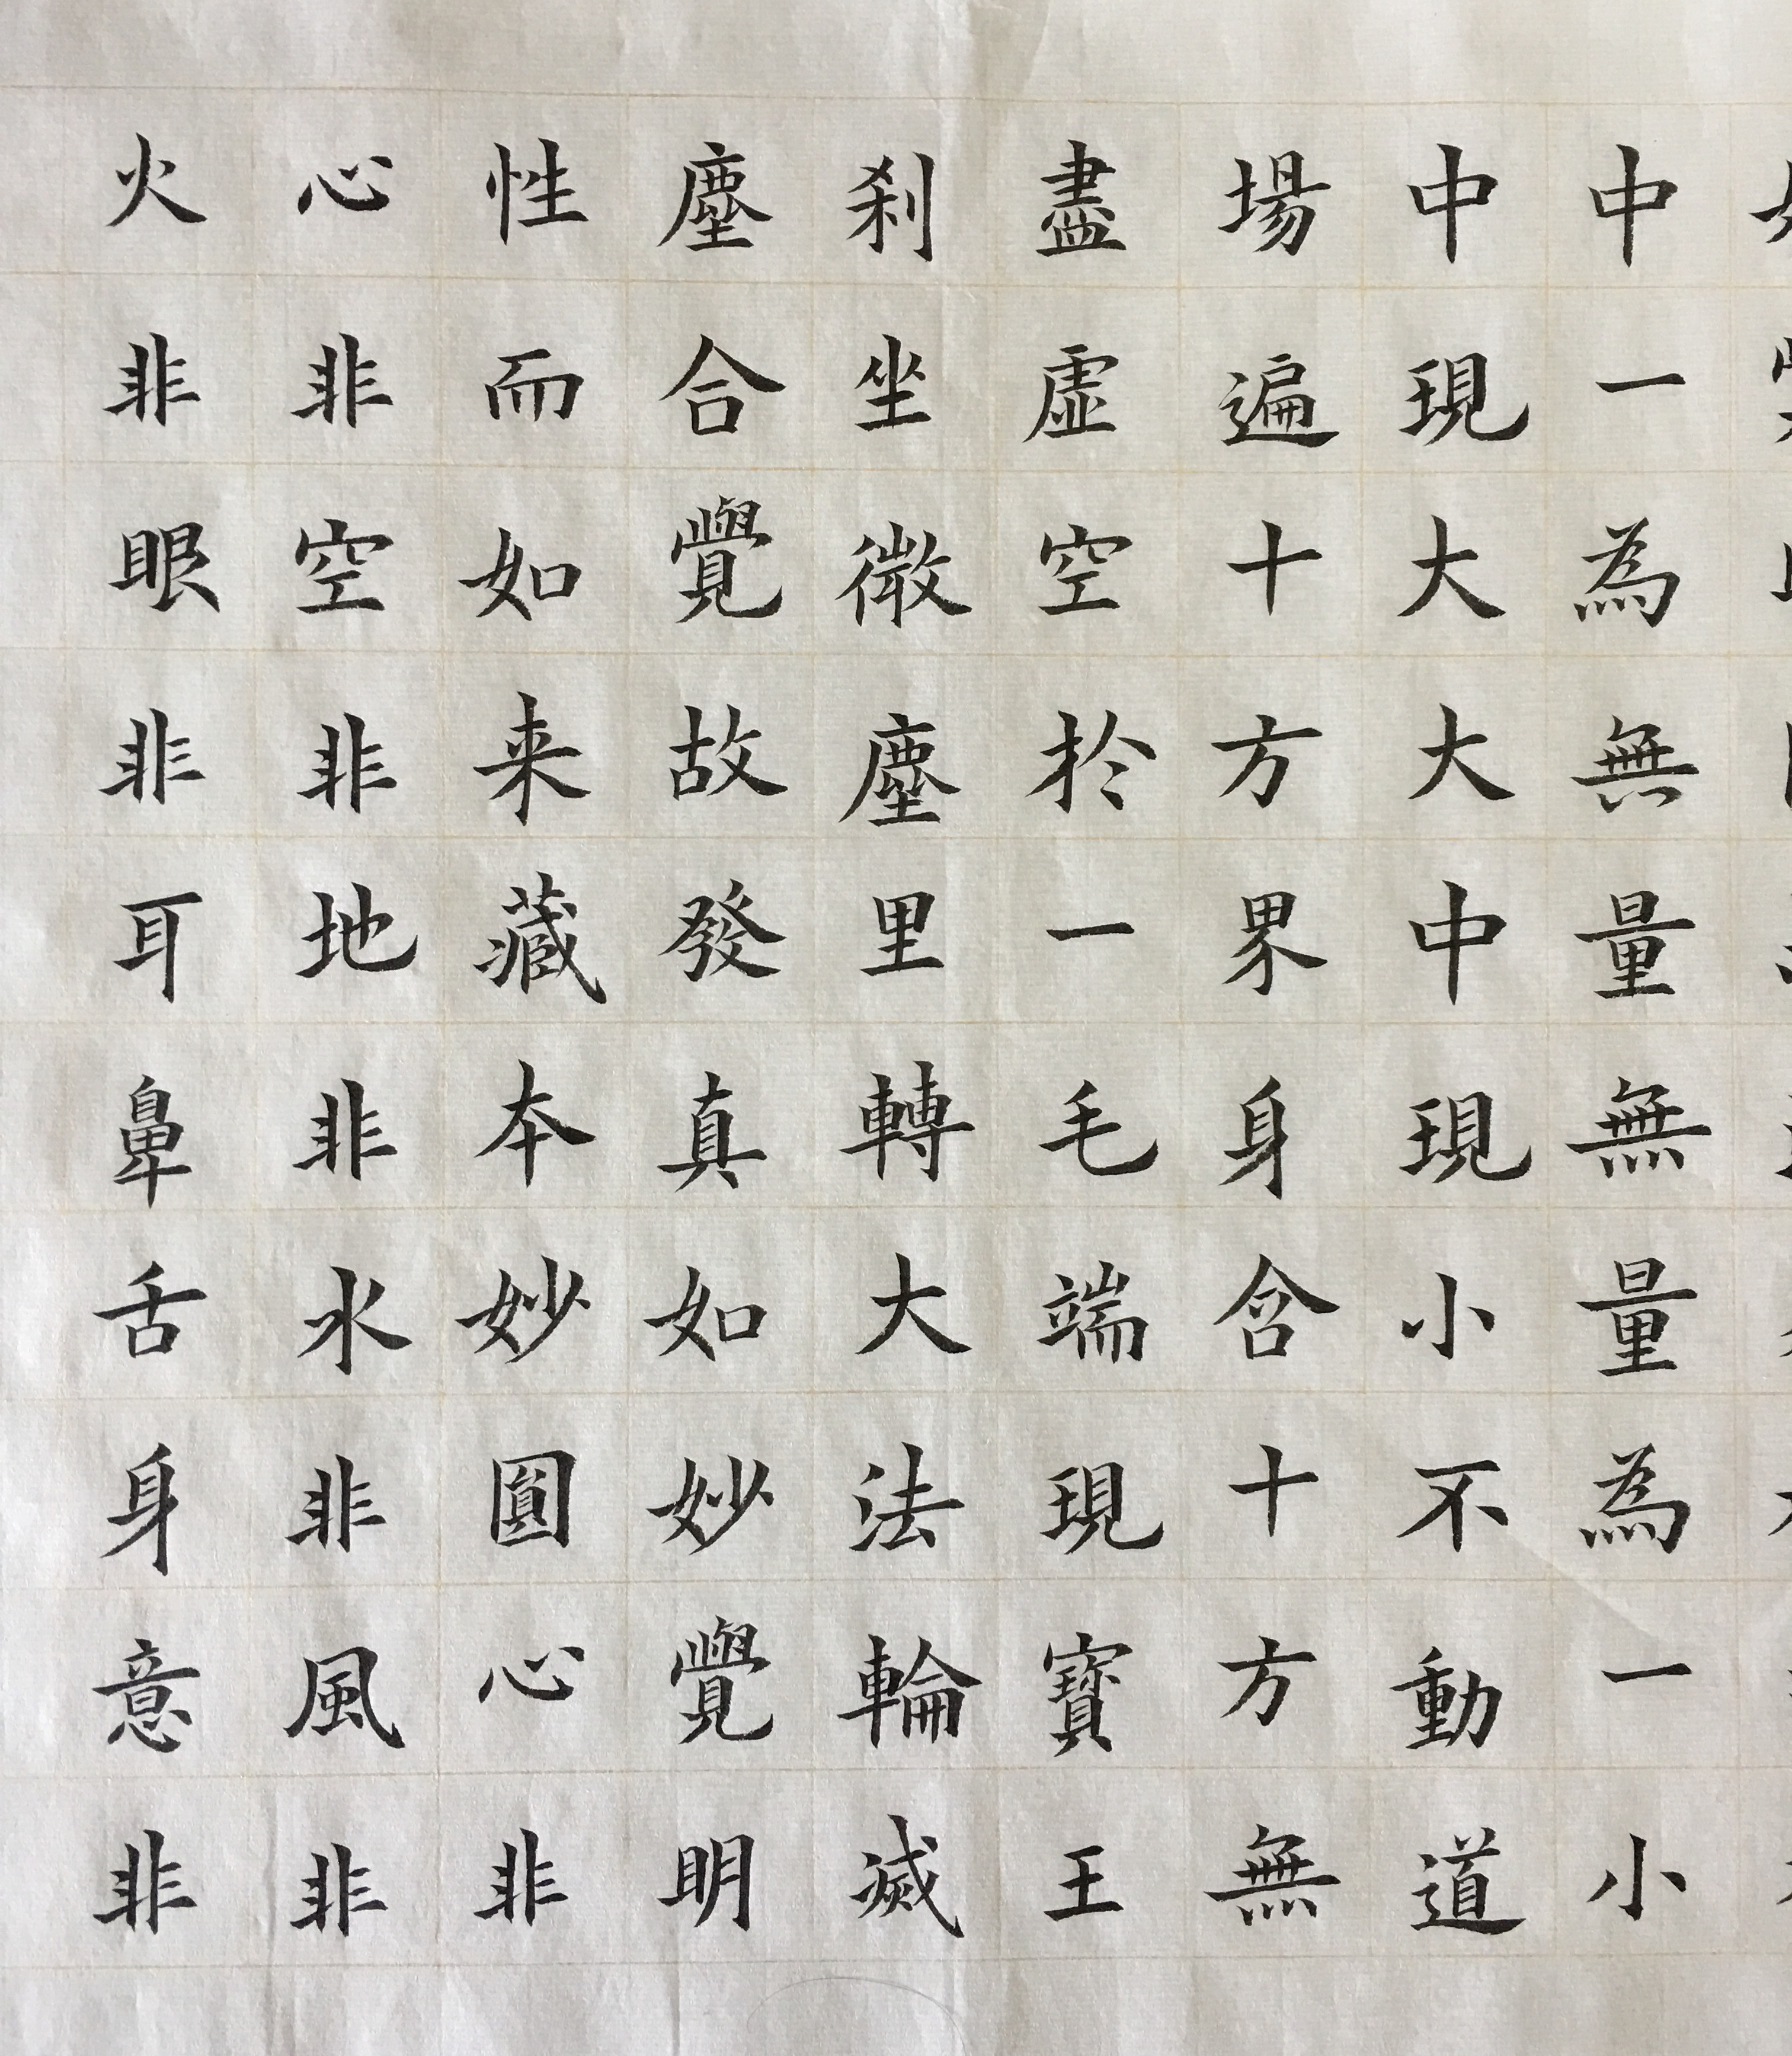 中一為無量無量為一小
中現大大中現小不動道
場遍十方界身含十方無
盡虛空於一毛端現寶王
刹坐微塵里轉大法輪滅
塵合覺故發真如妙覺明
性而如来藏本妙圓心非
心非空非地非水非風非
火非眼非耳鼻舌身意非